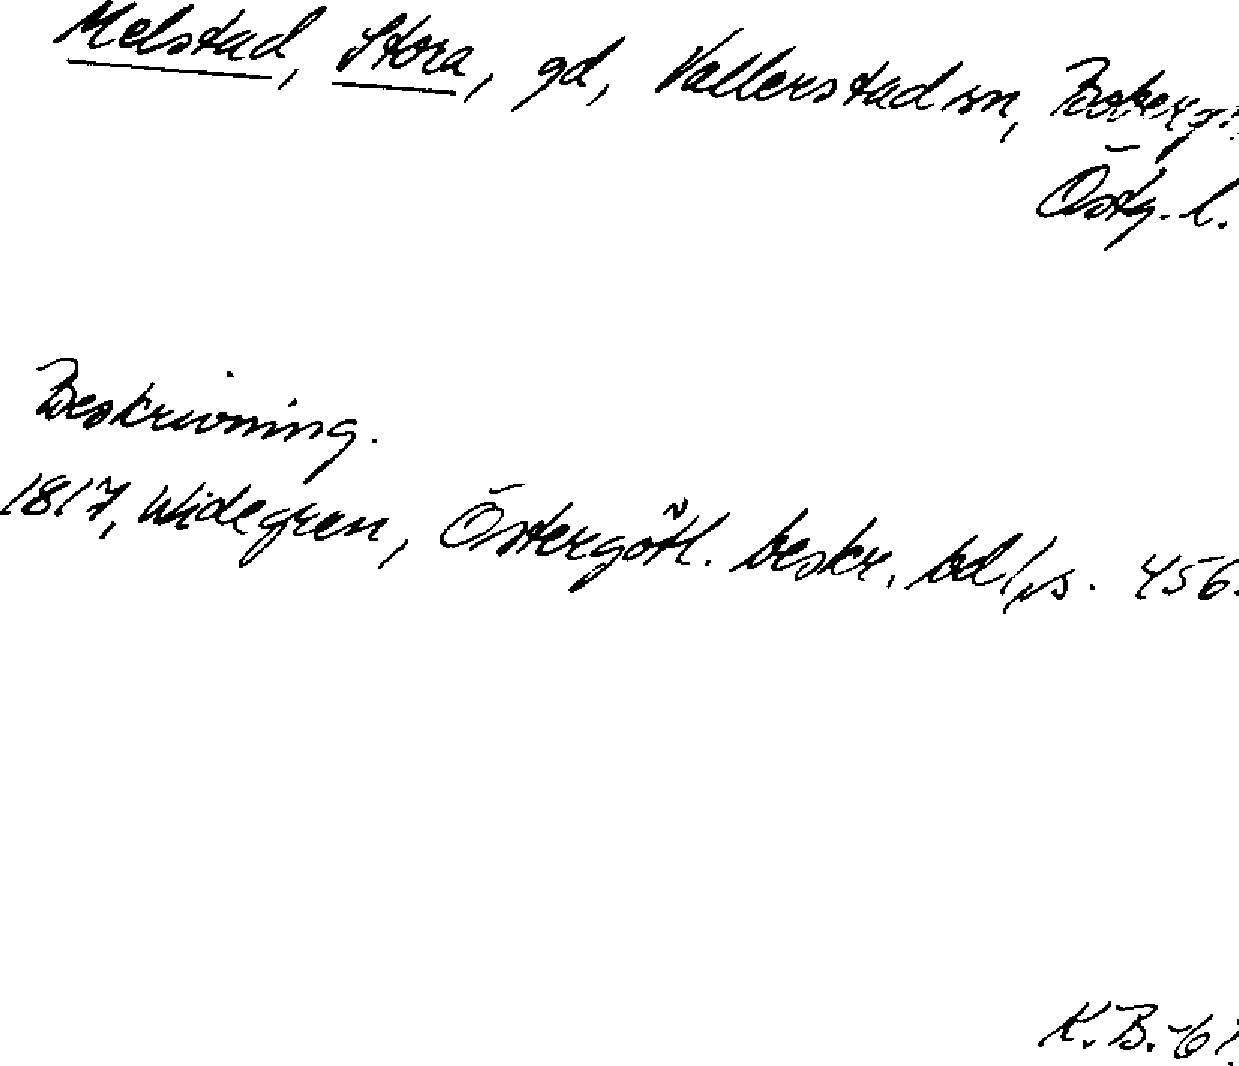 Melstad, Stora, gd, Vallerstad sn, Bobergs
Östg. l.
Beskrivning.
1817, Widegren, Östergötl. beskr. bd 1, s. 456.
K.B.